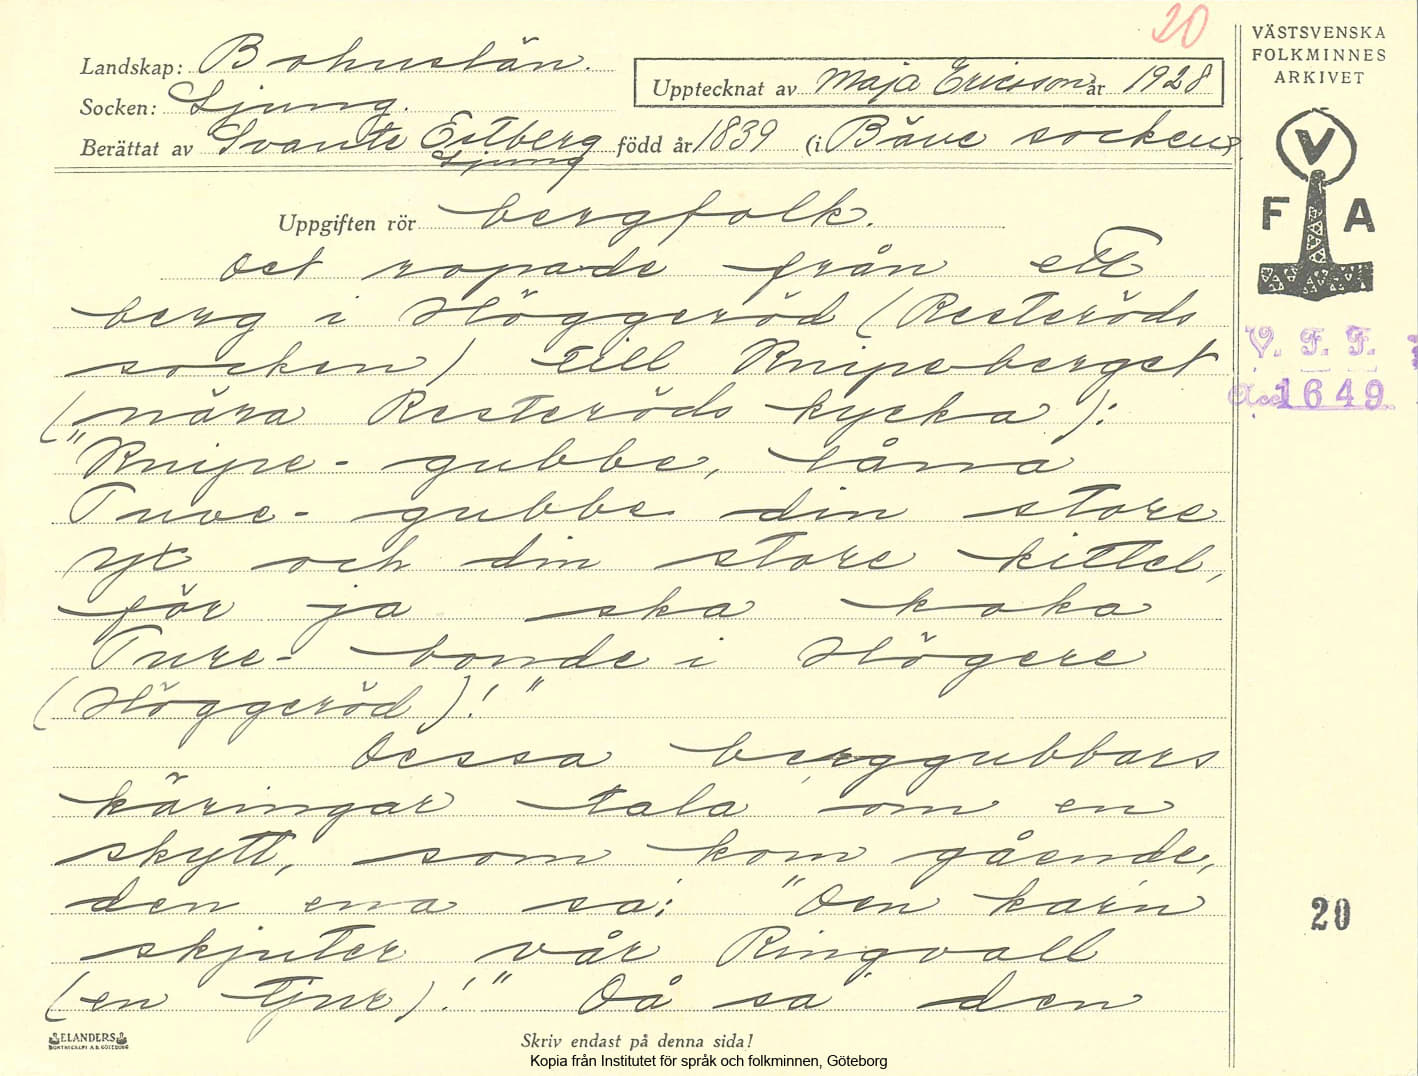 20
VÄSTSVENSKA
FOLKMINNES
ARKIVET
Landskap: Bohuslän.
Upptecknat av Maja Ericsson år 1928
Socken: Ljung.
Berättat av Svante Estberg född år 1839 (i Bäve socken).
Ljung
V
F A
Uppgiften rör bergfolk.
Det ropade från ett
berg i Höggeröd (Resteröds
socken) till Knipeberget
(nära Resteröds kyrka):
"Knipe-gubbe, låna
Tuve-gubbe din store
yx och din store kittel,
för ja ska koka
Ture-bonde i Högere
(Höggeröd)!"
Dessa berggubbars
käringar tala om en
skytt, som kom gående,
den ena sa: "Den kar'n
skjuter vår Ringvall
(en tjur)!" Då sa den
V. F. F.
Acc 1649
20
ELANDERS
BOKTRYCKERI A.B. GÖTEBORG
Skriv endast på denna sida!
Kopia från Institutet för språk och folkminnen, Göteborg